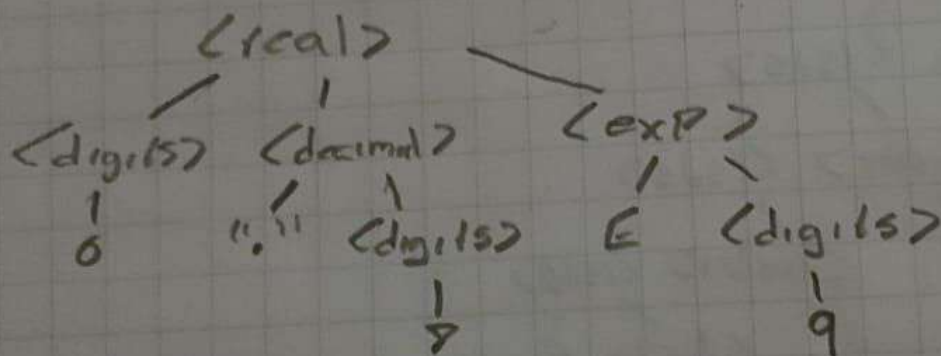 <real>
<digits> <decimal> <exp>
0 "." <digits> E <digits>
8 9